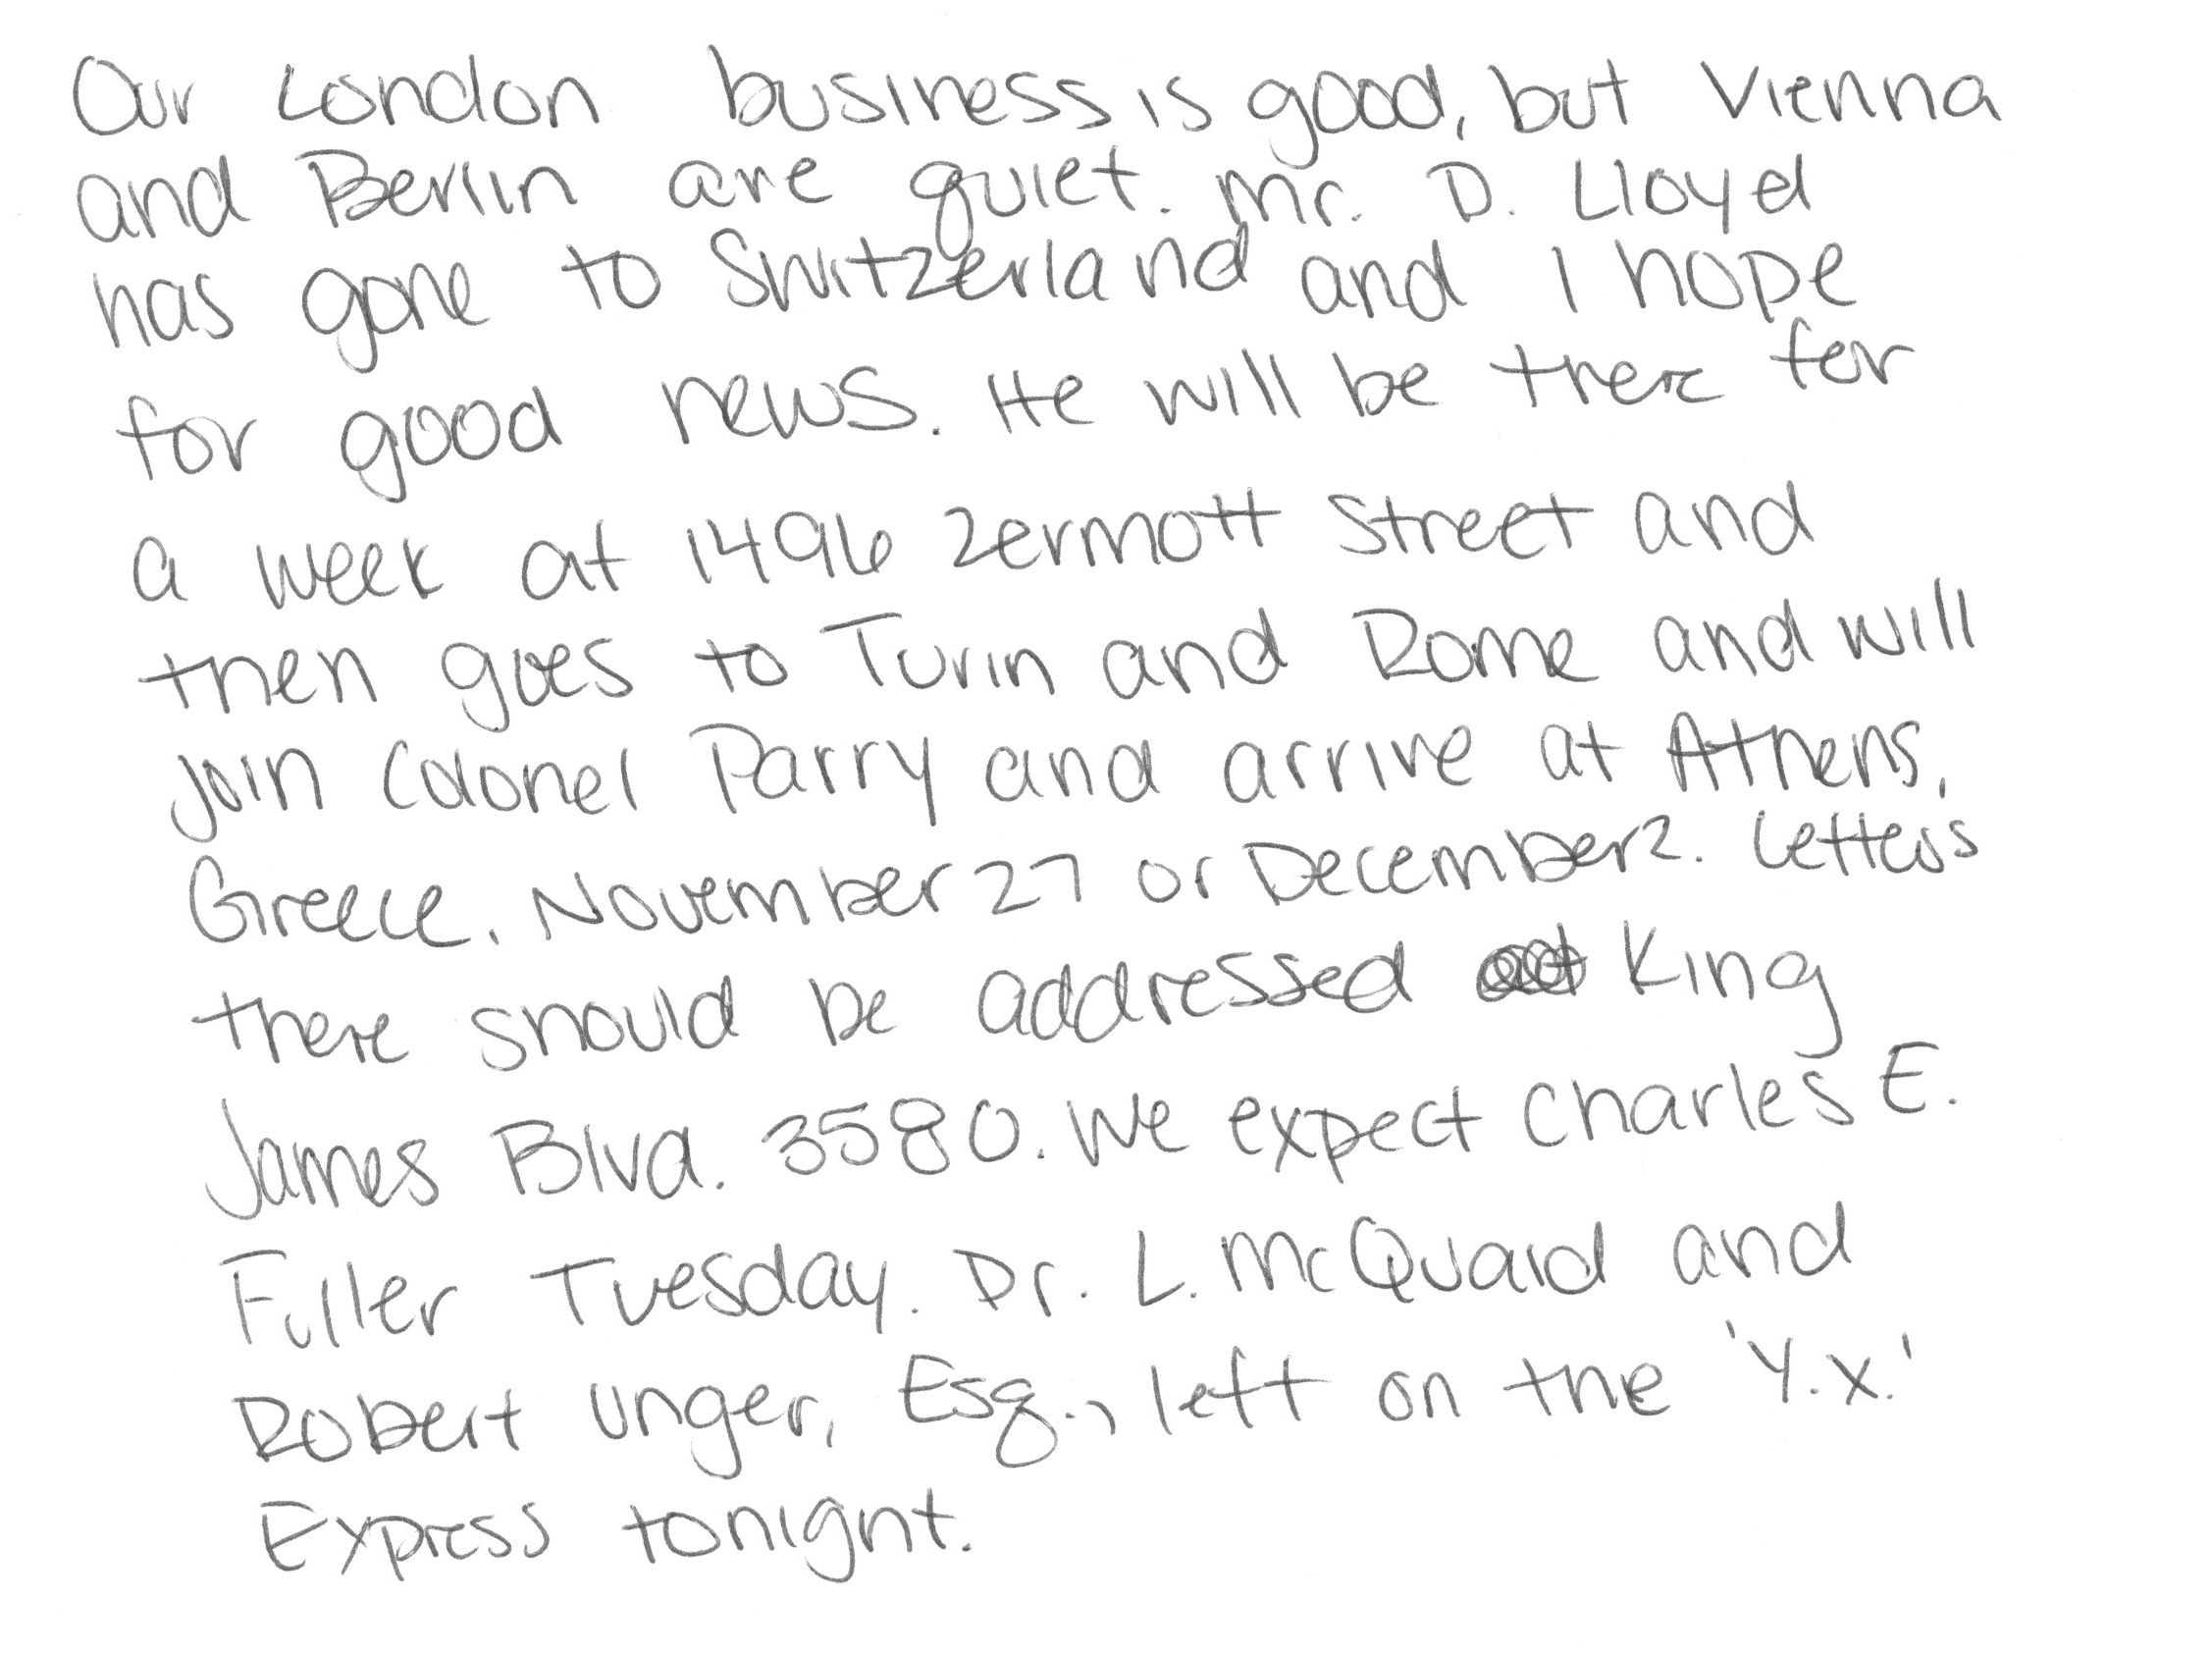 Our London business is good, but Vienna
and Berlin are quiet. Mr. D. Lloyd
has gone to Switzerland and I hope
for good news. He will be there for
a week at 1496 Zermott Street and
then goes to Turin and Rome and will
join Colonel Parry and arrive at Athens,
Greece, November 27 or December 2. Letters
there should be addressed King
James Blvd. 3580. We expect Charles E.
Fuller Tuesday. Dr. L. McQuaid and
Robert Unger, Esq., left on the 'Y.X.'
Express tonight.